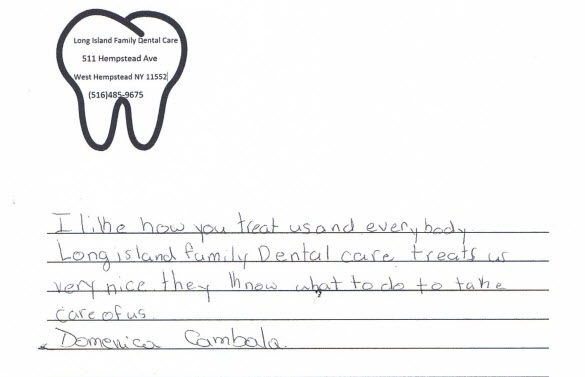 Long Island Family Dental Care
511 Hempstead Ave
West Hempstead NY 11552
(516)485-9675
I like how you treat us and everybody
Long island family Dental care treats us
very nice. they know what to do to take
care of us.
Domenica Cambala.